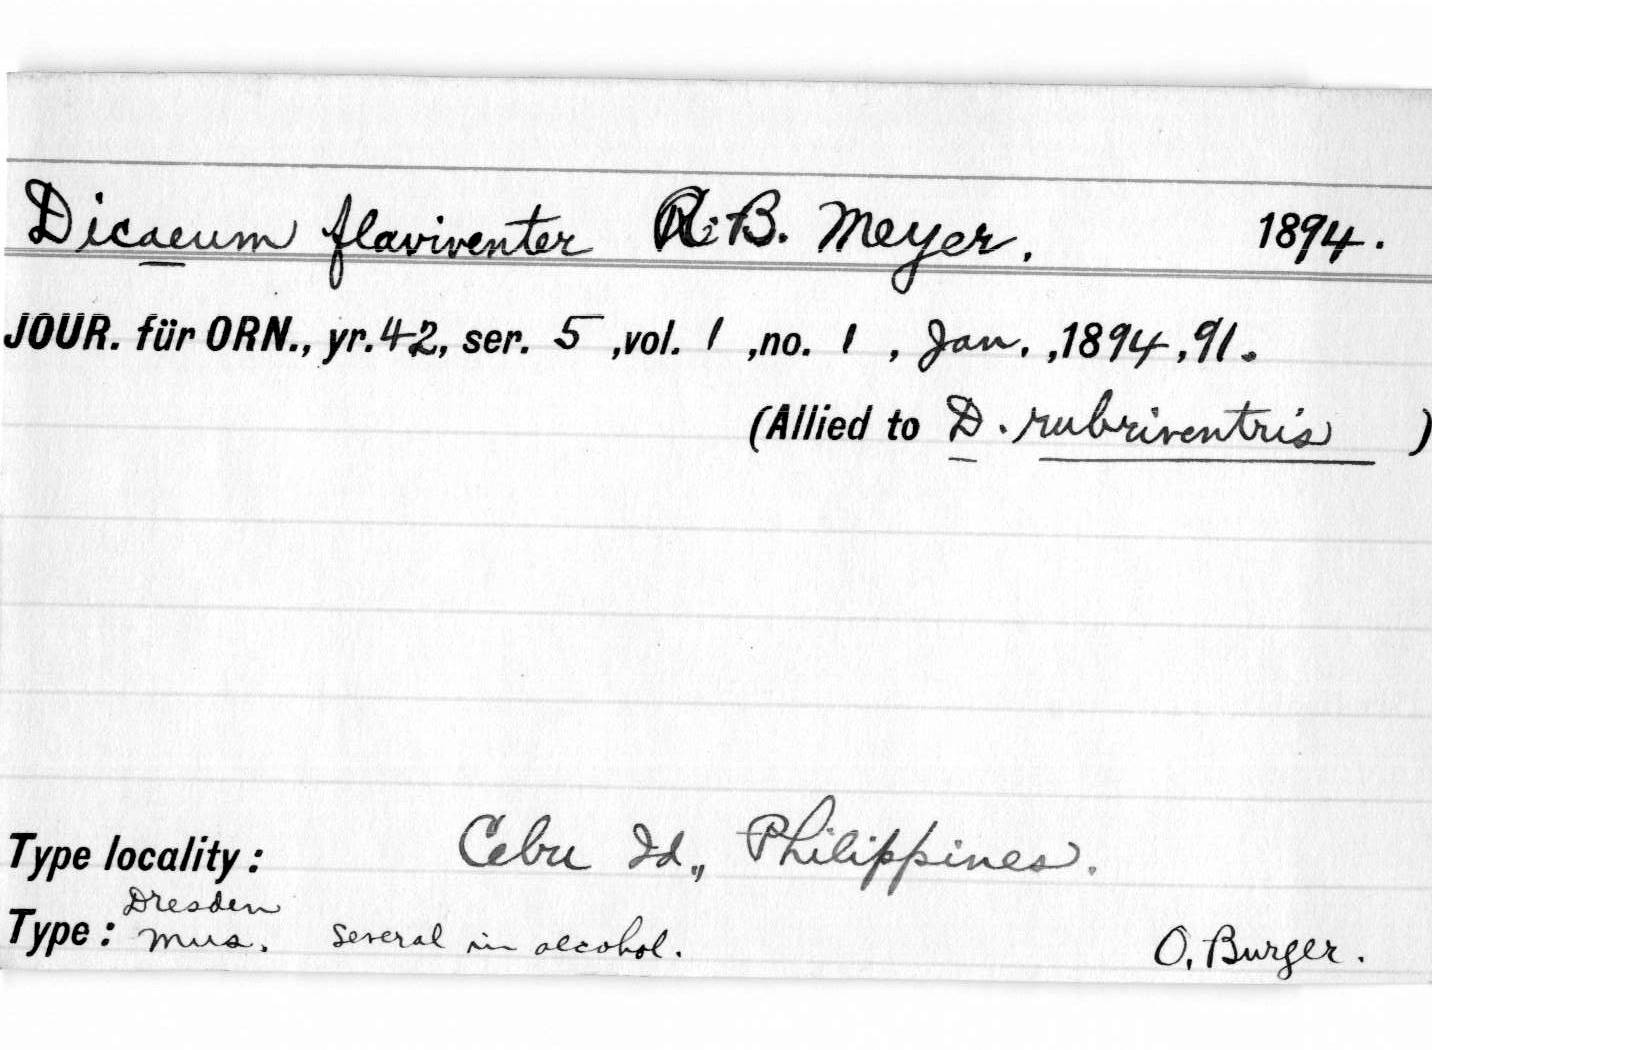 Dicaeum flaviventer A. B. Meyer. 1894.
JOUR. für ORN., yr. 42, ser. 5 , vol. 1 , no. 1 , Jan. , 1894 , 91.
(Allied to D. rubriventris )
Type locality : Cebu Id., Philippines.
Dresden
Type : Mus. Several in alcohol. O. Burger.